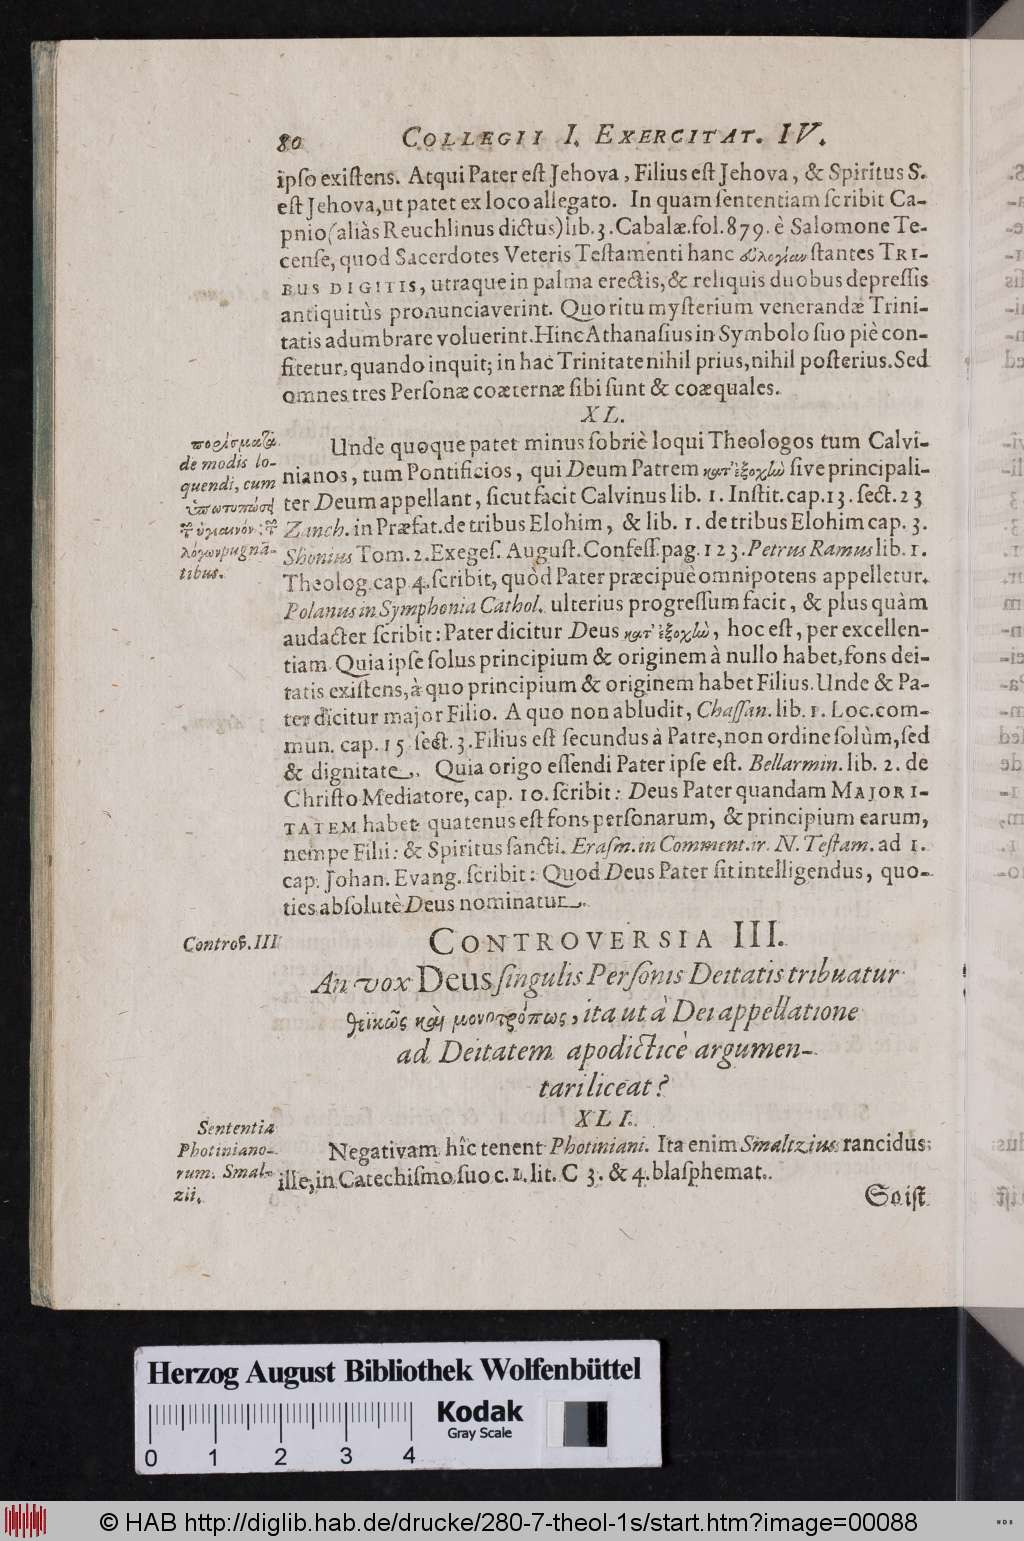 80 COLLEGII I. EXERCITAT. IV.
ipſo exiſtens. Atqui Pater eſt Jehova, Filius eſt Jehova, & Spiritus S.
eſt Jehova, ut patet ex loco allegato. In quam ſententiam ſcribit Ca-
pnio (aliàs Reuchlinus dictus) lib. 3. Cabalæ. fol. 879. è Salomone Te-
cenſe, quod Sacerdotes Veteris Teſtamenti hanc εὐλογίαν ſtantes TRI-
BUS DIGITIS, utraque in palma erectis, & reliquis duobus depreſſis
antiquitùs pronunciaverint. Quo ritu myſterium venerandæ Trini-
tatis adumbrare voluerint. Hinc Athanaſius in Symbolo ſuo piè con-
fitetur, quando inquit; in hac Trinitate nihil prius, nihil poſterius. Sed
omnes tres Perſonæ coæternæ ſibi ſunt & coæquales.
XL.
πορίσματα
de modis lo-
quendi, cum
ὑποτυπώσῃ
ὑγιαινόν
λόγων pugnã-
tibus.
Unde quoque patet minus ſobriè loqui Theologos tum Calvi-
nianos, tum Pontificios, qui Deum Patrem κατ' ἐξοχὴν ſive principali-
ter Deum appellant, ſicut facit Calvinus lib. 1. Inſtit. cap. 13. ſect. 23
Zanch. in Præfat. de tribus Elohim, & lib. 1. de tribus Elohim cap. 3.
Shonius Tom. 2. Exegeſ. Auguſt. Confeſſ. pag. 123. Petrus Ramus lib. 1.
Theolog. cap. 4. ſcribit, quòd Pater præcipuè omnipotens appelletur.
Polanus in Symphonia Cathol. ulterius progreſſum facit, & plus quàm
audacter ſcribit: Pater dicitur Deus κατ' ἐξοχὴν, hoc eſt, per excellen-
tiam. Quia ipſe ſolus principium & originem à nullo habet, fons dei-
tatis exiſtens, à quo principium & originem habet Filius. Unde & Pa-
ter dicitur major Filio. A quo non abludit, Chaſſan. lib. 1. Loc. com-
mun. cap. 15 ſect. 3. Filius eſt ſecundus à Patre, non ordine ſolùm, ſed
& dignitate. Quia origo eſſendi Pater ipſe eſt. Bellarmin. lib. 2. de
Chriſto Mediatore, cap. 10. ſcribit: Deus Pater quandam MAJORI-
TATEM habet quatenus eſt fons perſonarum, & principium earum,
nempe Filii: & Spiritus ſancti. Eraſm. in Comment. in N. Teſtam. ad 1.
cap. Johan. Evang. ſcribit: Quod Deus Pater ſit intelligendus, quo-
ties abſolutè Deus nominatur.
Controv. III
CONTROVERSIA III.
An vox Deus ſingulis Perſonis Deitatis tribuatur
θεϊκῶς καὶ μονοτρόπως, ita ut à Dei appellatione
ad Deitatem apodicticè argumen-
tari liceat?
XLI.
Sententia
Photiniano-
rum. Smal-
zii.
Negativam hîc tenent Photiniani. Ita enim Smaltzius rancidus
ille, in Catechiſmo ſuo c. 1. lit. C 3. & 4. blaſphemat.
So iſt
Herzog August Bibliothek Wolfenbüttel
Kodak
Gray Scale
0 1 2 3 4
© HAB http://diglib.hab.de/drucke/280-7-theol-1s/start.htm?image=00088